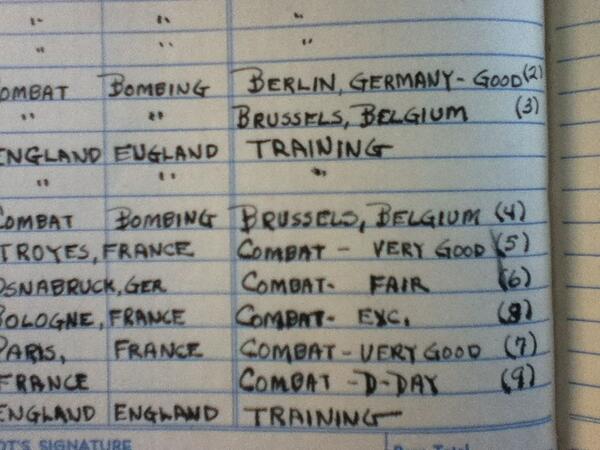 " " "
" " "
OMBAT BOMBING BERLIN, GERMANY - GOOD (2)
" " BRUSSELS, BELGIUM (3)
ENGLAND ENGLAND TRAINING
" " "
COMBAT BOMBING BRUSSELS, BELGIUM (4)
TROYES, FRANCE COMBAT - VERY GOOD (5)
OSNABRUCK, GER COMBAT - FAIR (6)
BOLOGNE, FRANCE COMBAT - EXC. (8)
PARIS, FRANCE COMBAT - VERY GOOD (7)
FRANCE COMBAT - D-DAY (9)
ENGLAND ENGLAND TRAINING
OT'S SIGNATURE